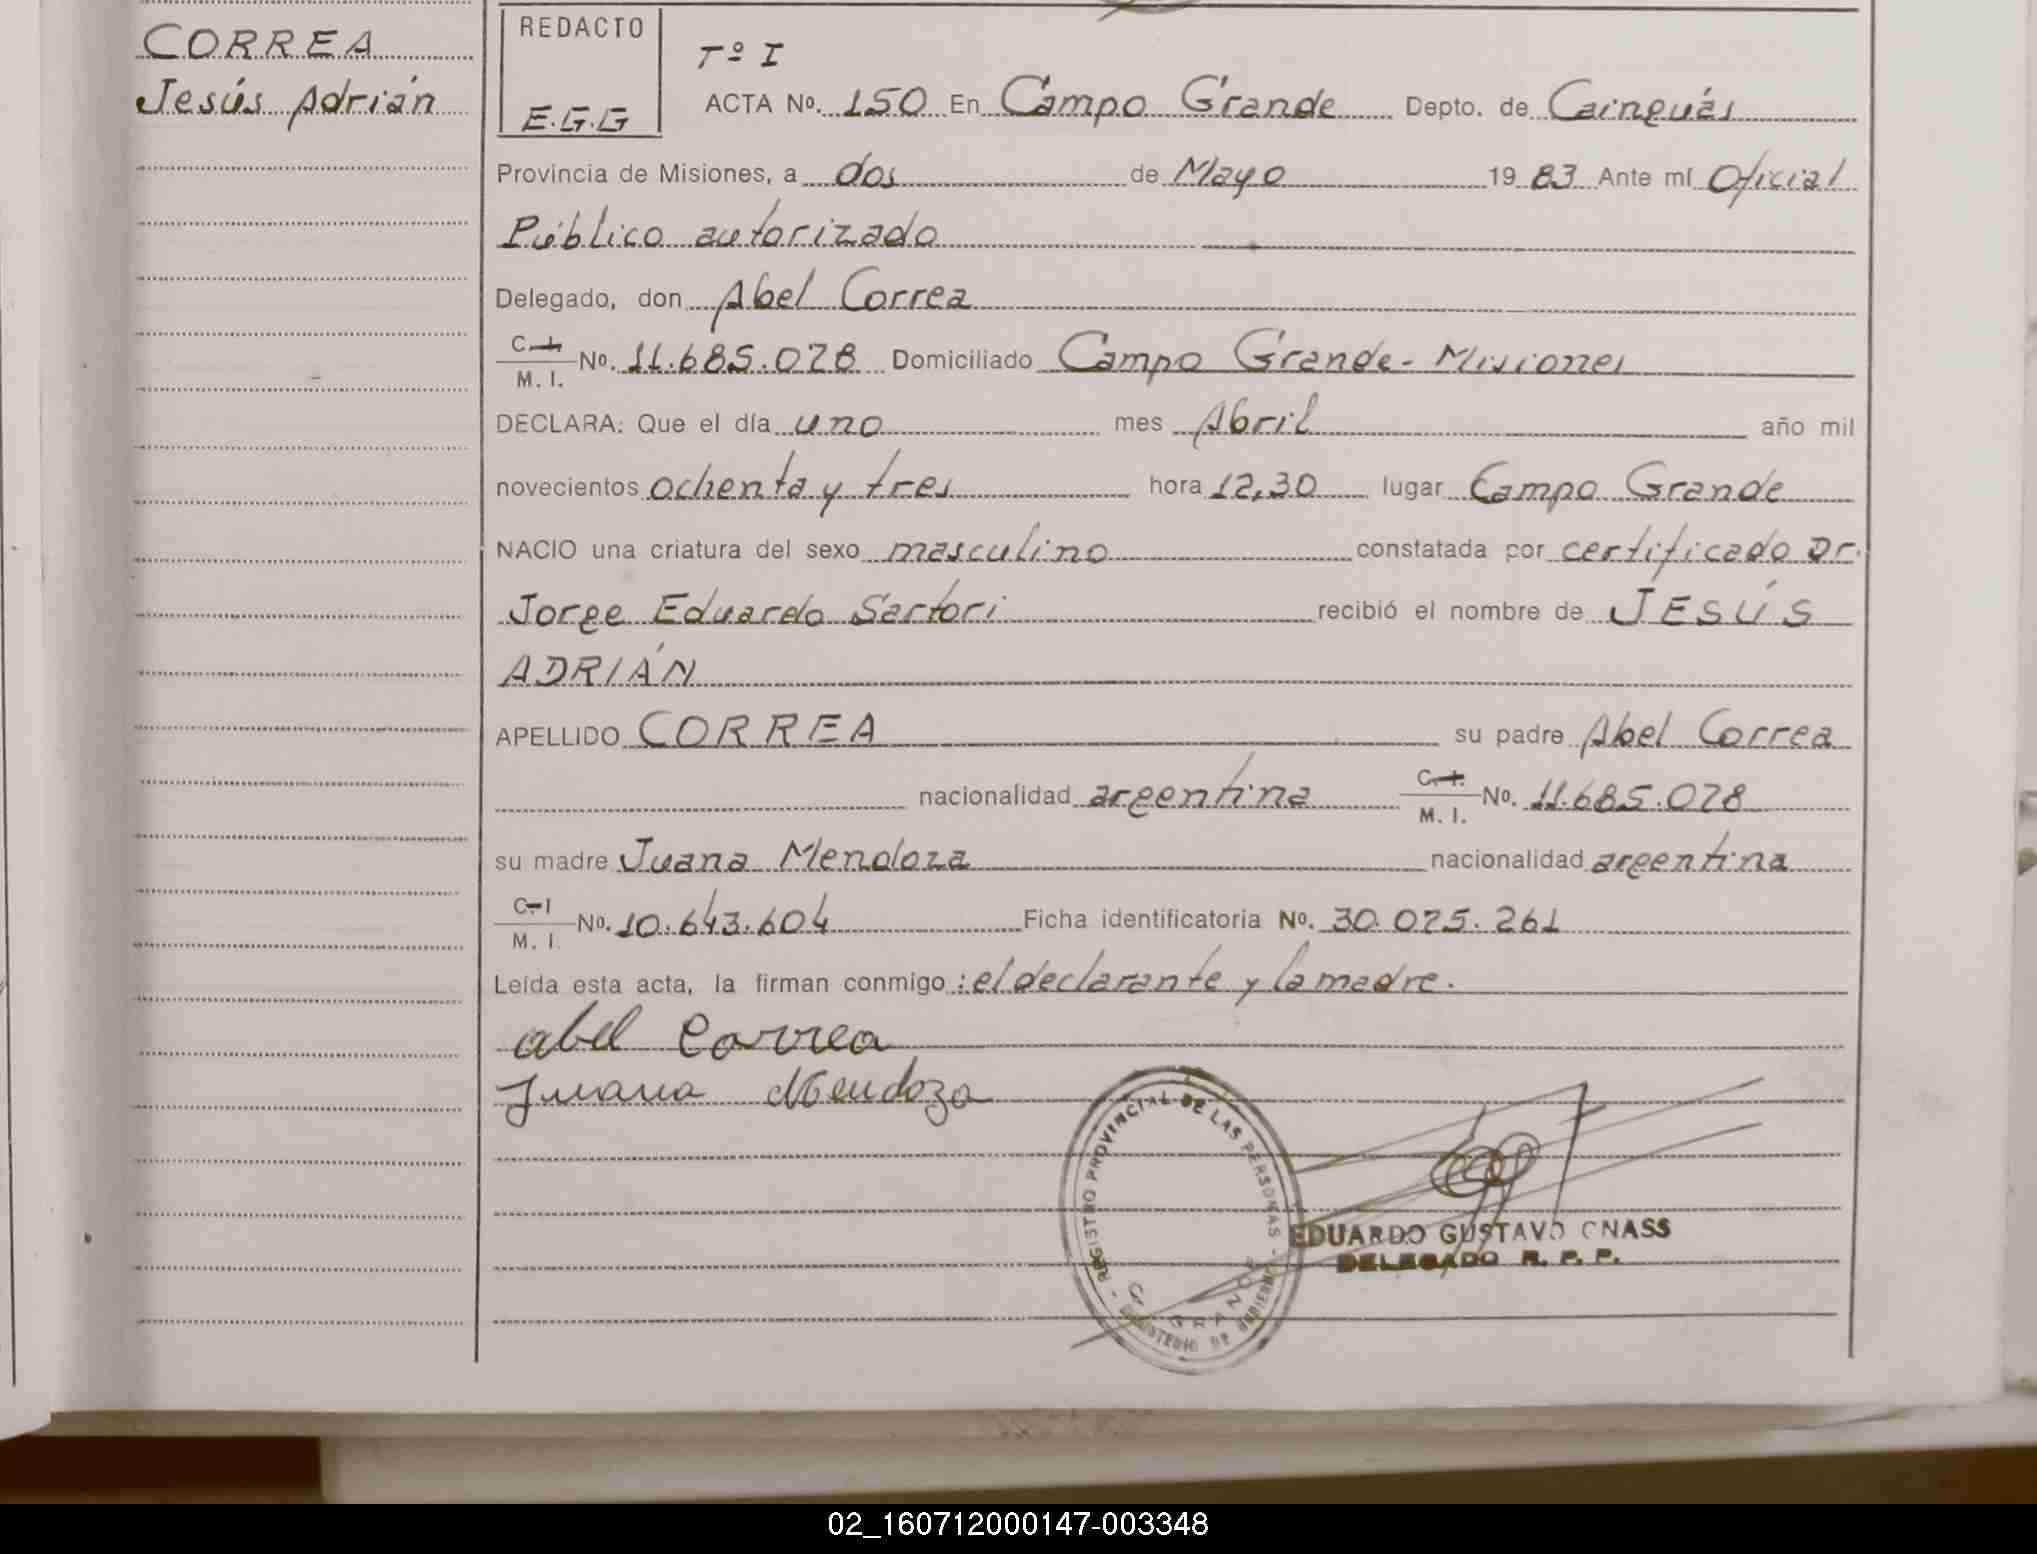 CORREA
Jesús Adrián
REDACTO
E.G.G
Tº I
ACTA Nº. 150 En Campo Grande Depto. de Cainguás
Provincia de Misiones, a dos de Mayo 19 83 Ante mí Oficial
Público autorizado
Delegado, don Abel Correa
C. I. M. I. Nº. 11.685.078 Domiciliado Campo Grande - Misiones
DECLARA: Que el día uno mes Abril año mil
novecientos ochenta y tres hora 12,30 lugar Campo Grande
NACIO una criatura del sexo masculino constatada por certificado Dr.
Jorge Eduardo Sartori recibió el nombre de JESÚS
ADRIÁN
APELLIDO CORREA su padre Abel Correa
nacionalidad argentina C. I. M. I. Nº. 11.685.078
su madre Juana Mendoza nacionalidad argentina
C. I M. I. Nº. 10.643.604 Ficha identificatoria Nº. 30.075.261
Leída esta acta, la firman conmigo : el declarante y la madre.
abel Correa
Juana Mendoza
REGISTRO PROVINCIAL DE LAS PERSONAS - MINISTERIO DE GOBIERNO -
C. GRANDE
EDUARDO GUSTAVO GNASS
DELEGADO R. P. P.
02_160712000147-003348